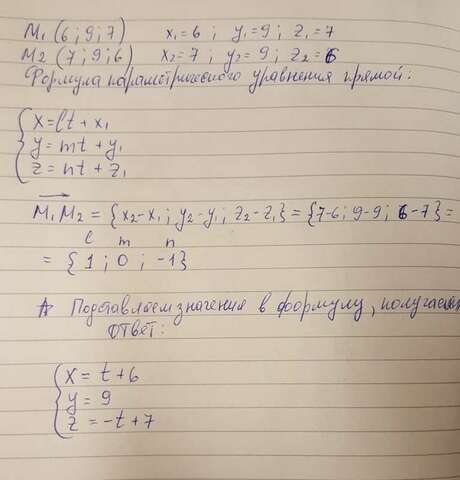 M₁ (6; 9; 7)   x₁=6 ; y₁=9 ; z₁=7
M₂ (7; 9; 6)   x₂=7 ; y₂=9 ; z₂=6
Формула параметрического уравнения прямой:
{x=lt+x₁
y=mt+y₁
z=nt+z₁
M₁M₂ = {x₂-x₁; y₂-y₁; z₂-z₁} = {7-6; 9-9; 6-7} =
= {1; 0; -1}
l m n
Подставляем значения в формулу, получаем
ответ:
{x=t+6
y=9
z=-t+7